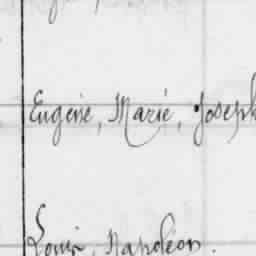 Eugénie, Marie, Joseph
Louis, Napoléon.